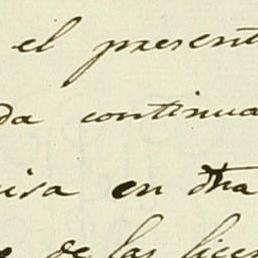 el present
da continua
uisa en dha
de las licen